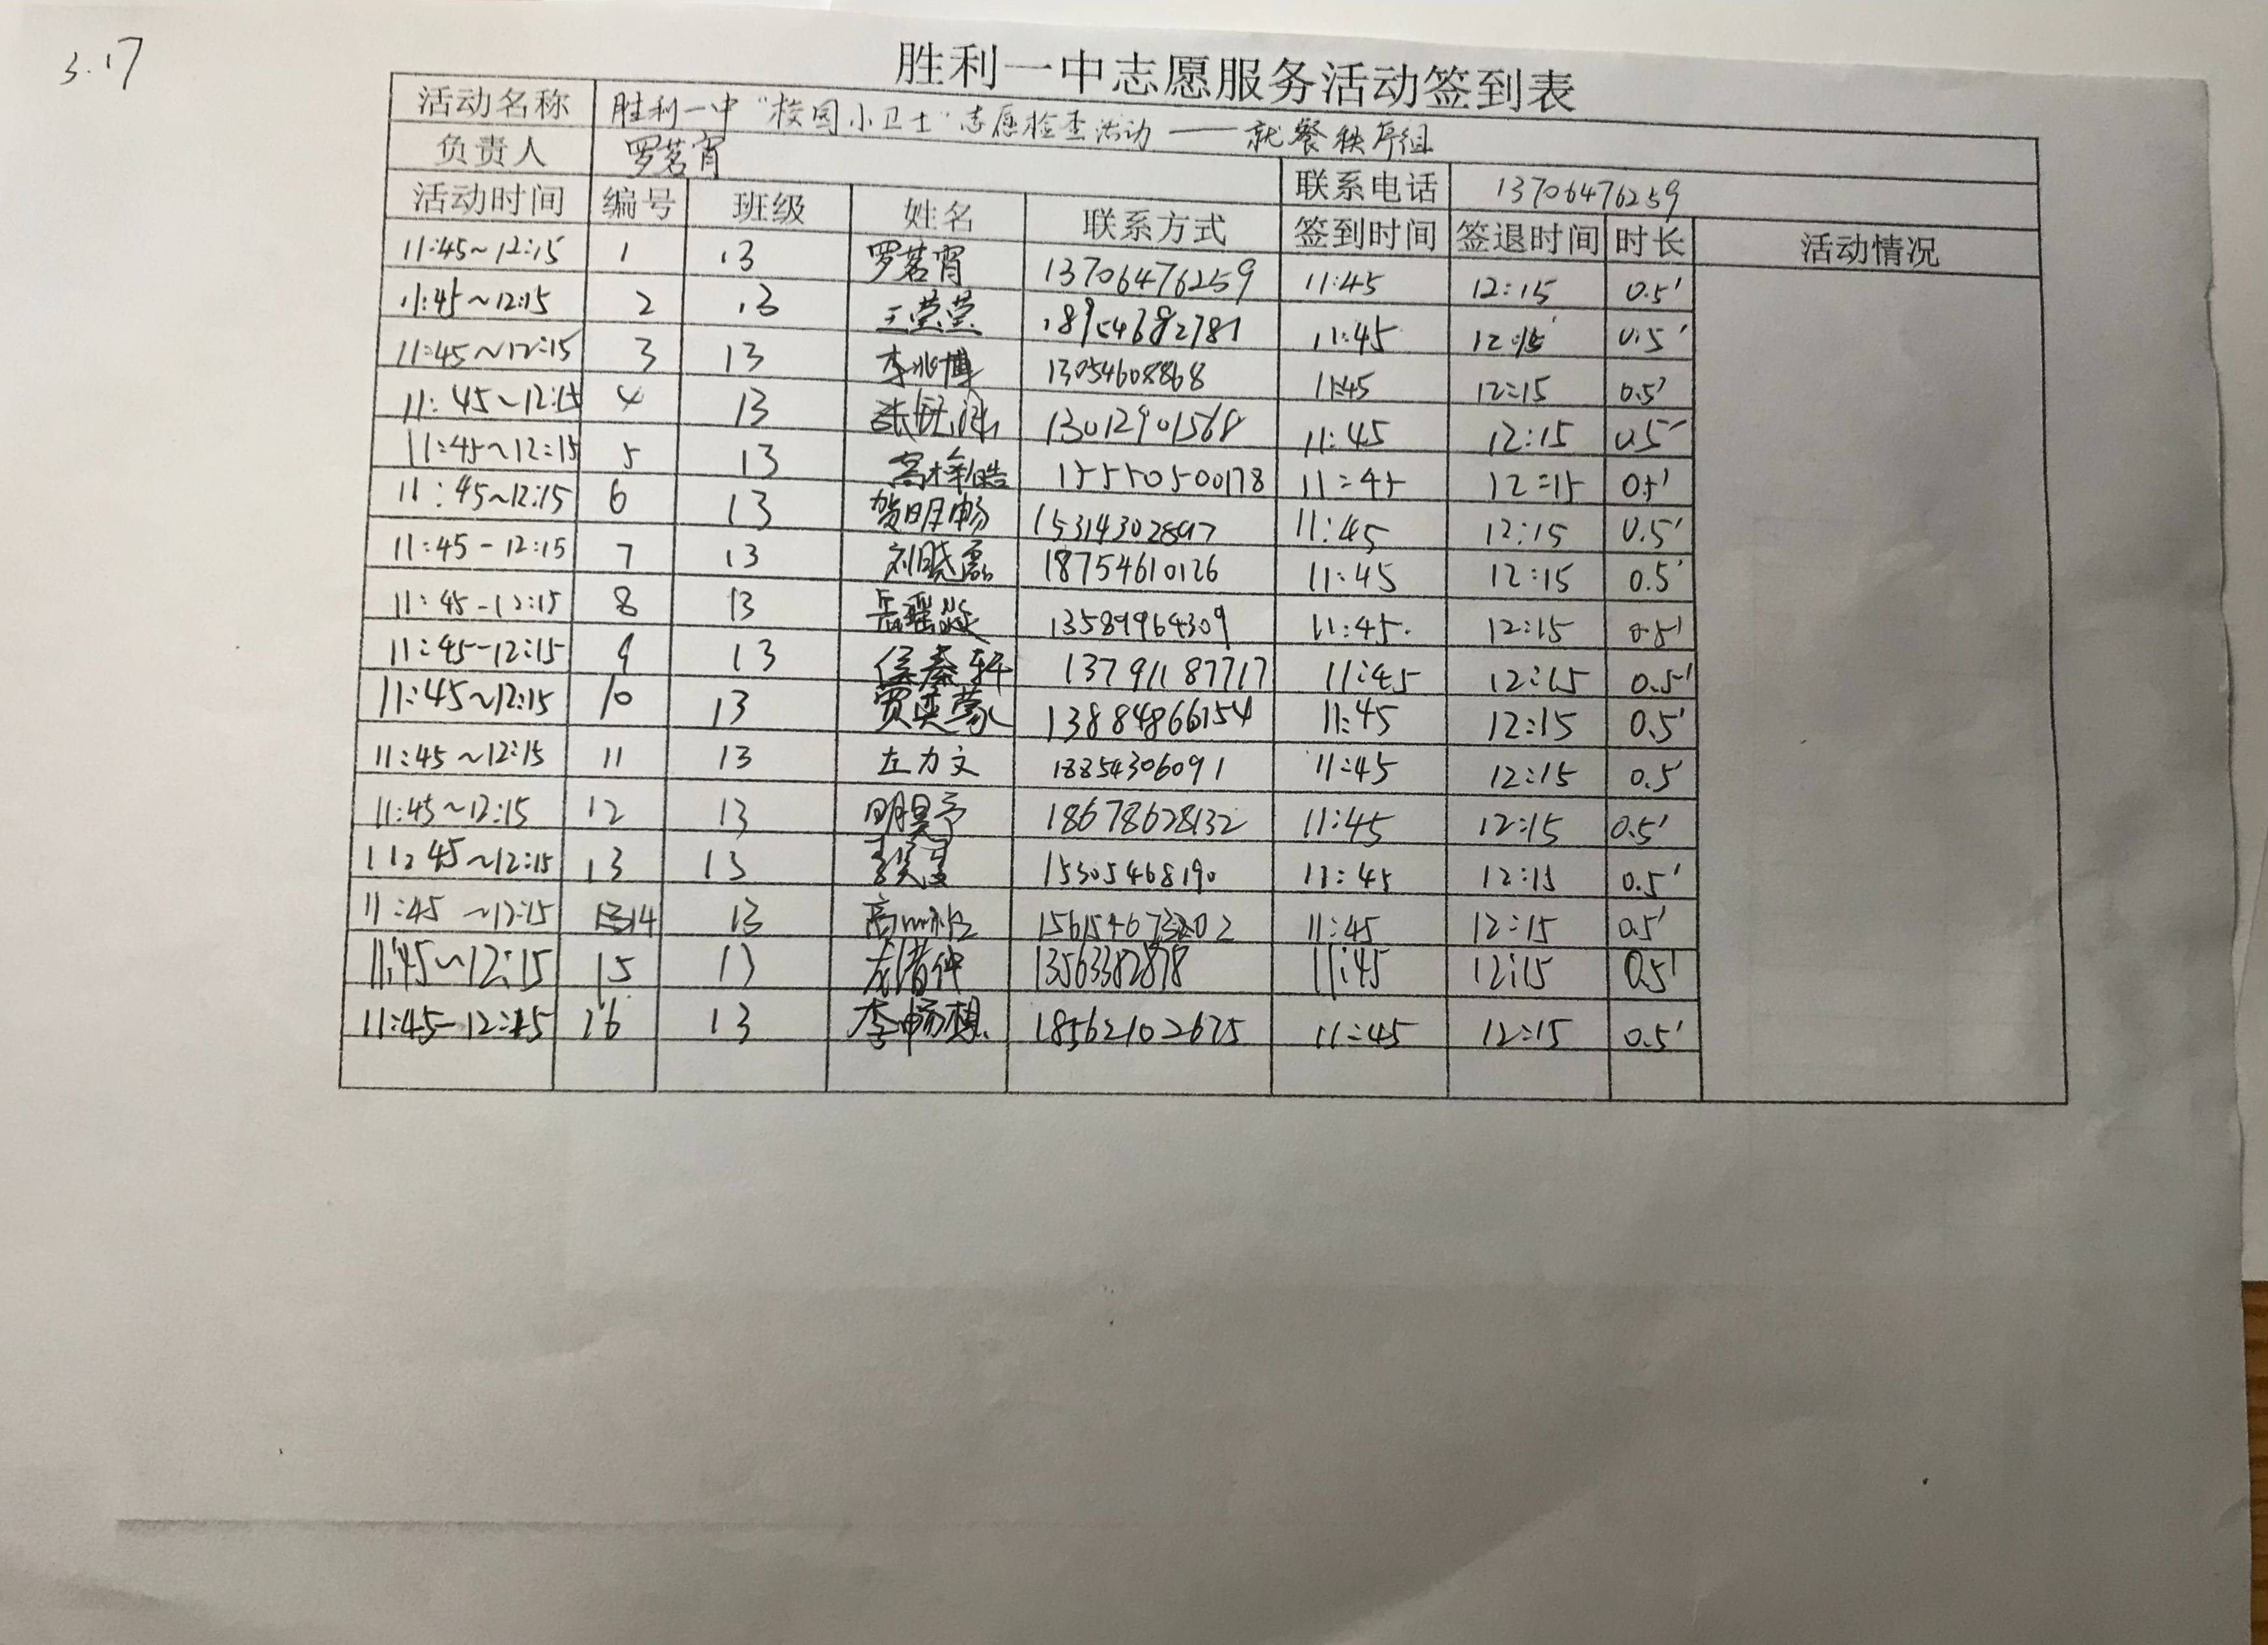 3.17
胜利一中志愿服务活动签到表
活动名称 胜利一中“校园小卫士”志愿检查活动——就餐秩序组
负责人 罗茗宵 联系电话 13706476259
活动时间 编号 班级 姓名 联系方式 签到时间 签退时间 时长 活动情况
11:45~12:15 1 13 罗茗宵 13706476259 11:45 12:15 0.5'
11:45~12:15 2 13 王莹莹 18954682781 11:45 12:15 0.5'
11:45~12:15 3 13 李兆博 13054608868 11:45 12:15 0.5'
11:45~12:15 4 13 13012901568 11:45 12:15 0.5'
11:45~12:15 5 13 高梓皓 15550500178 11:45 12:15 0.5'
11:45~12:15 6 13 贺明畅 15314302897 11:45 12:15 0.5'
11:45-12:15 7 13 刘晓磊 18754610126 11:45 12:15 0.5'
11:45-12:15 8 13 13589964309 11:45. 12:15 0.5'
11:45-12:15 9 13 侯秦轩 13791187717 11:45 12:15 0.5'
11:45~12:15 10 13 贾奕蒙 13884866154 11:45 12:15 0.5'
11:45~12:15 11 13 左力文 18854306091 11:45 12:15 0.5'
11:45~12:15 12 13 明昊予 18678628132 11:45 12:15 0.5'
11:45~12:15 13 13 15305468190 11:45 12:15 0.5'
11:45~12:15 14 13 11:45 12:15 0.5'
11:45~12:15 15 13 13563382878 11:45 12:15 0.5'
11:45-12:15 16 13 李畅想. 18562102675 11:45 12:15 0.5'